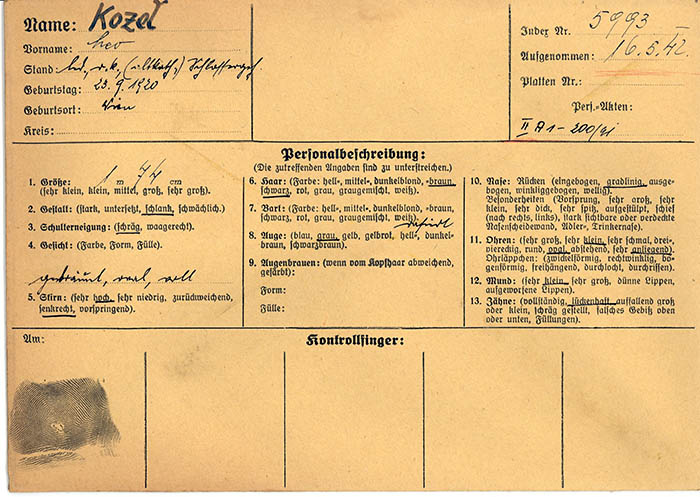 Name: Kozel
Vorname: Leo
Stand: led., r.k., (altkath.) Schlossergeh.
Geburtstag: 23.9.1920
Geburtsort: Wien
Kreis:
Index Nr. 5993
Aufgenommen: 16.5.42
Platten Nr.:
Pers.-Akten:
II A1-200/
Personalbeschreibung:
(Die zutreffenden Angaben sind zu unterstreichen.)
1. Größe: 1 m 74 cm
(sehr klein, klein, mittel, groß, sehr groß).
2. Gestalt: (stark, untersetzt, schlank, schwächlich.)
3. Schulterneigung: (schräg, waagerecht).
4. Gesicht: (Farbe, Form, Fülle).
gebräunt, oval, voll
5. Stirn: (sehr hoch, sehr niedrig, zurückweichend,
senkrecht, vorspringend).
6. Haar: (Farbe: hell-, mittel-, dunkelblond, -braun,
schwarz, rot, grau, graugemischt, weiß).
7. Bart: (Farbe: hell-, mittel-, dunkelblond, -braun,
schwarz, rot, grau, graugemischt, weiß).
rasiert
8. Auge: (blau, grau, gelb, gelbrot, hell-, dunkel-
braun, schwarzbraun).
9. Augenbrauen: (wenn vom Kopfhaar abweichend,
gefärbt):
Form:
Fülle:
10. Nase: Rücken (eingebogen, gradlinig, ausge-
bogen, winkliggebogen, wellig).
Besonderheiten (Vorsprung, sehr groß, sehr
klein, sehr dick, sehr spitz, aufgestülpt, schief
(nach rechts, links), stark sichtbare oder verdeckte
Nasenscheidewand, Adler-, Trinkernase).
11. Ohren: (sehr groß, sehr klein, sehr schmal, drei-,
viereckig, rund, oval, abstehend, sehr anliegend)
Ohrläppchen: (zwickelförmig, rechtwinklig, bo-
genförmig, freihängend, durchlocht, durchrissen).
12. Mund: (sehr klein, sehr groß, dünne Lippen,
aufgeworfene Lippen).
13. Zähne: (vollständig, lückenhaft, auffallend groß
oder klein, schräg gestellt, falsches Gebiß oben
oder unten, Füllungen).
Am:
Kontrollfinger: